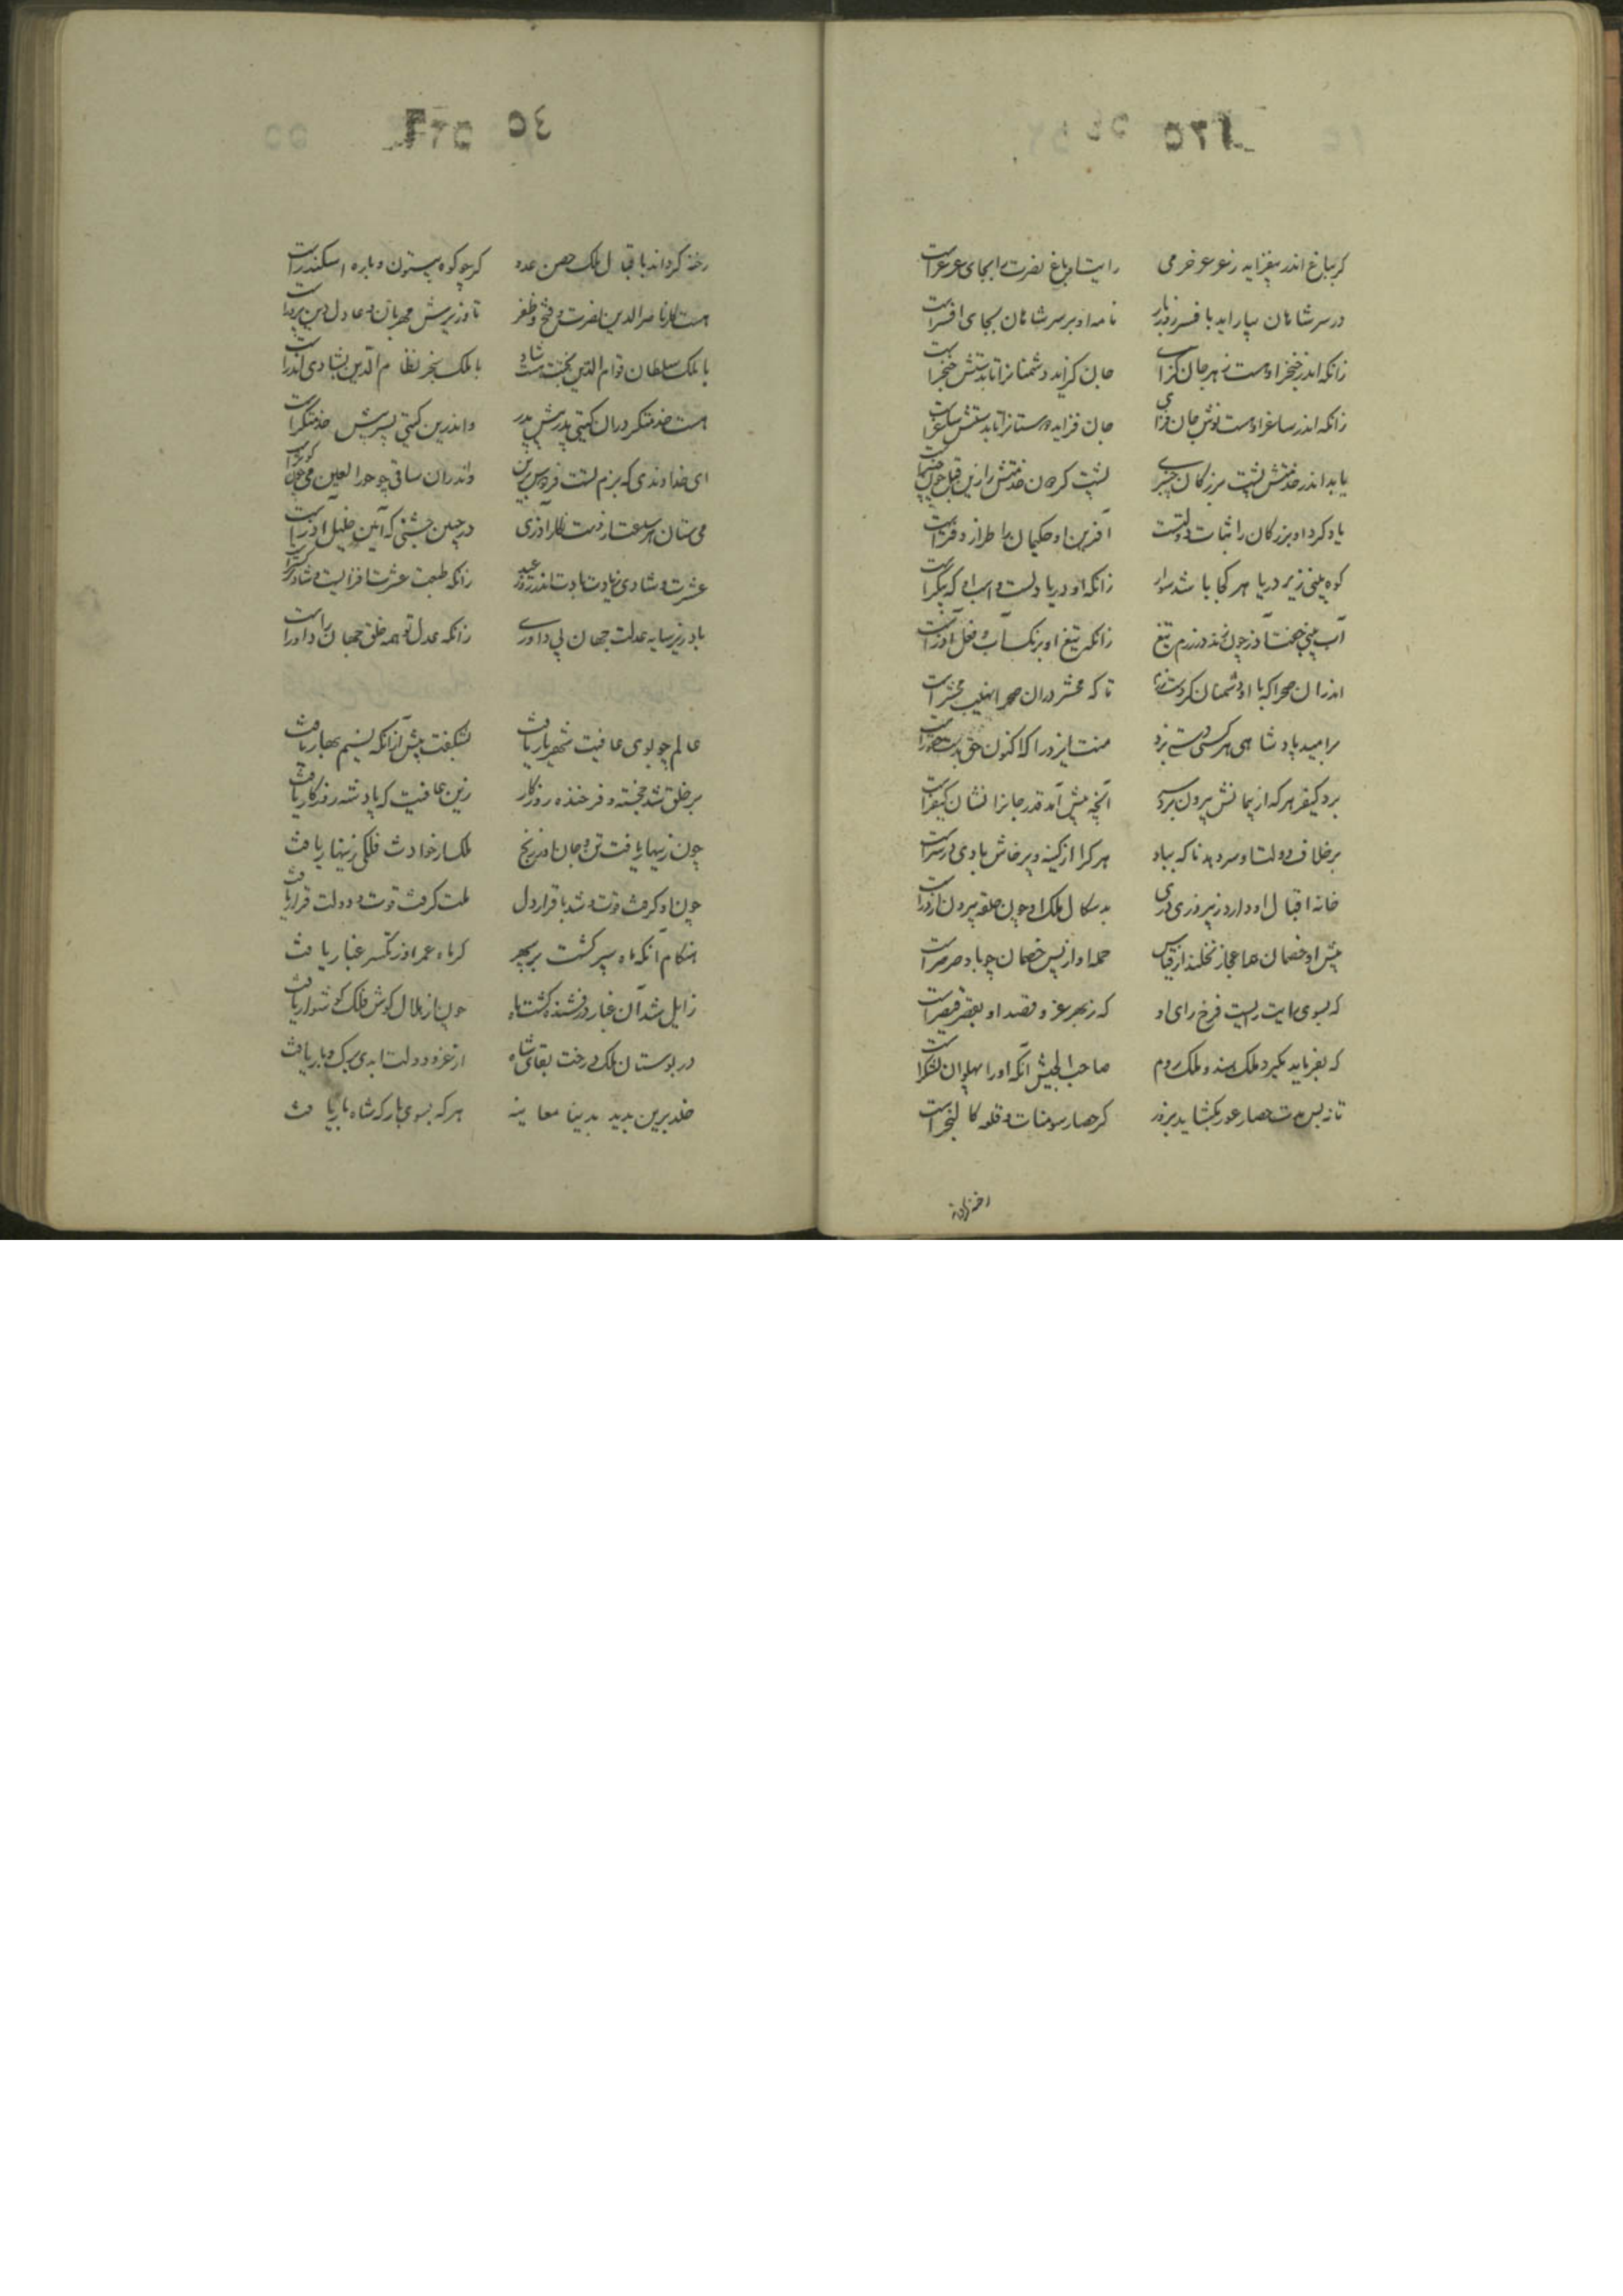 ٥٤
گر بباغ اندر بیفزاید ز عرعر خرمی رایت او باغ نصرت را بجای عرعر است
در سر شاهان بیاراید بافسر روز بار نامه او بر سر شاهان بجای افسر است
زانکه اندر خنجر اوست زهر جان گزای جان گزاید دشمنانرا تا بدستش خنجر است
زانکه اندر ساغر اوست نوش جان فزای جان فزاید دوستانرا تا بدستش ساغر است
یابد اندر خدمتش پشت بزرگان چنبری پشت گردون خدمتش را زین قبل چون چنبر است
یاد کرد او بزرگان را ثبات دولتست آفرین او حکیمان را طراز دفتر است
کوه بینی زیر دریا هر کجا باشد سوار زانکه او دریا دلست و اسب او که پیکر است
آب بینی جفت آذر چون زند در رزم تیغ زانکه تیغ او برنک آب و فعل آذر است
اندران صحرا که با او دشمنان کردند رزم تا که محشر دران صحرا نهیب محشر است
بر امید پادشاهی هر کسی دستی بزد منت ایزد را که اکنون حق بدست حقور است
برد کیفر هر که از پیمانش بیرون برد سر آنچه پیش آمد قدر جانرا نشان کیفر است
بر خلاف دولت او سر دهد ناکه بباد هر کرا از کینه و پرخاش بادی در سر است
خانه اقبال او دارد ز پیروزی دری بدسکال ملک او چون حلقه بیرون از در است
پیش او خصمان همه عجاز نخلند از قیاس حمله او از پس خصمان چو باد صرصر است
که بسوی رایت رایست فرخ رای او که ز بهر عز و قصد او بقصر قیصر است
که بفرماید بگیرد ملک هند و ملک روم صاحب الجیش آنکه او را پهلوان لشکر است
تا نه بس مدت حصار غور بگشاید بزور کز حصار سومنات و قلعه کالنجر است
رخنه گرداند باقبال ملک حصن عدو گر چو کوه بیستون و باره اسکندر است
هست کار ناصر الدین نصرت و فتح و ظفر تا وزیرش مهربان و عادل و دین پرور است
با ملک سلطان قوام الدین بجنت هست شاد با ملک سنجر نظام الدین بشادی اندر است
هست خدمتگر دران گیتی پدرش پیش پدر واندرین گیتی پسر پیش پسر خدمتگر است
ای خداوندی که بزم تست فردوس برین واندران ساقی چو حورا لعین می چون کوثر است
می ستان هر ساعت از دست نگار آذری در چنین جشنی که آیین خلیل آذر است
عشرت و شادی زیادت بادت اندر روز عید زانکه طبعت عشرت افزایست و شادی گستر است
باد زیر سایه عدلت جهان بی داوری زانکه عدل تو همه خلق جهان را داور است
عالم چو بوی عافیت شهریار یافت بشکفت پیش از آنکه نسیم بهار یافت
بر خلق شد خجسته و فرخنده روزگار زین عافیت که پادشه روزگار یافت
چون زینهار یافت تن و جان او ز رنج ملک از حوادث فلکی زینهار یافت
چون او گرفت قوت و شد با قرار دل ملت گرفت قوت و دولت قرار یافت
هنگام آنکه ماه سپر گشت بر سپهر گر ماه عمر او ز تکسر غبار یافت
زایل شد آن غبار و درفشنده گشت ماه چون از هلال گوش فلک گوشوار یافت
در بوستان ملک درخت بقای شاه از عز و دولت ابدی برک و بار یافت
خلد برین بدید بدنیا معاینه هر که بسوی بارکه شاه بار یافت
رخنه گرداند